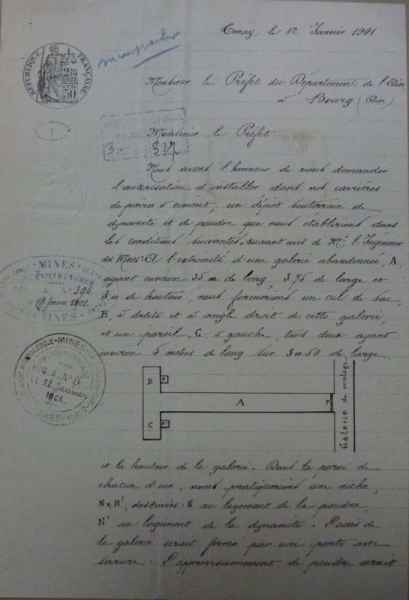 le 12 Janvier 1901
Monsieur le Préfet du Département de l'Ain
à Bourg (Ain)
RÉPUBLIQUE FRANÇAISE
Monsieur le Préfet
Nous avons l'honneur de vous demander
l'autorisation d'installer, dans nos carrières
de pierre à ciment, un dépôt souterrain de
dynamite et de poudre que nous établirons dans
les conditions suivantes, suivant avis de Mr. l'Ingénieur
des Mines. A l'extrémité d'une galerie abandonnée, A
ayant environ 35 m de long, 3.75 de large et
3 m de hauteur, nous formerons un cul de sac
B, à droite et à angle droit de cette galerie,
et un pareil, C, à gauche, tous deux ayant
environ 6 mètres de long sur 3 m 50 de large
MINES
B
A
P
C
Galerie de roulage
et la hauteur de la galerie. Dans la paroi de
chacun d'eux, nous pratiquerons une niche,
N & N', destinées: N au logement de la poudre
N' au logement de la dynamite. L'accès de
la galerie serait fermé par une porte avec
serrure. L'approvisionnement de poudre serait